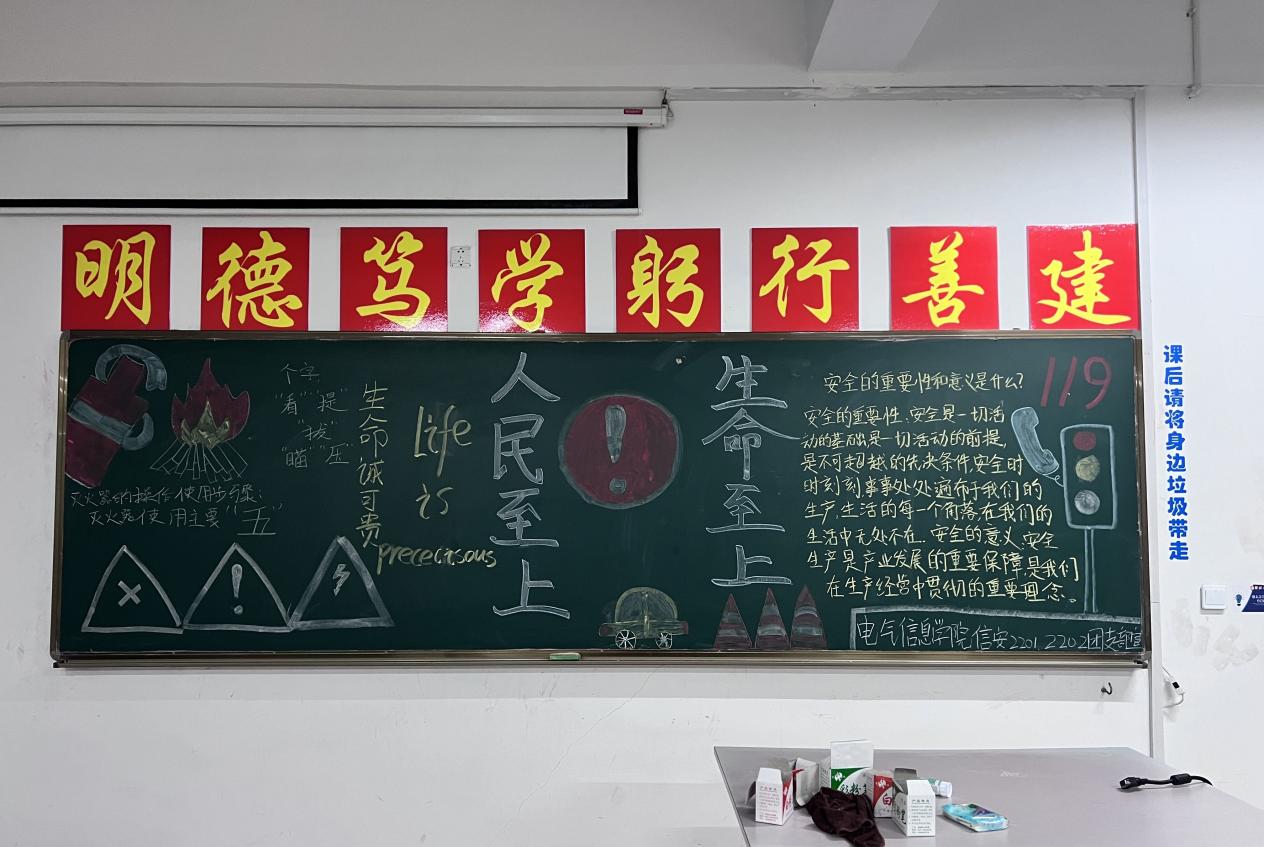 明德笃学躬行善建
个字
"看""提"
"拔"
"瞄""压"
灭火器的操作使用步骤：
灭火器使用主要"五"
生命诚可贵
Life
is
prececisous
人民至上
生命至上
安全的重要性和意义是什么？
119
安全的重要性、安全是一切活
动的基础是一切活动的前提，
是不可超越的先决条件，安全时
时刻刻，事事处处遍布于我们的
生产，生活的每一个角落，在我们的
生活中无处不在．安全的意义：安全
生产是产业发展的重要保障，是我们
在生产经营中贯彻的重要理念。
电气信息学院信安2201、2202团支部宣
课后请将身边垃圾带走